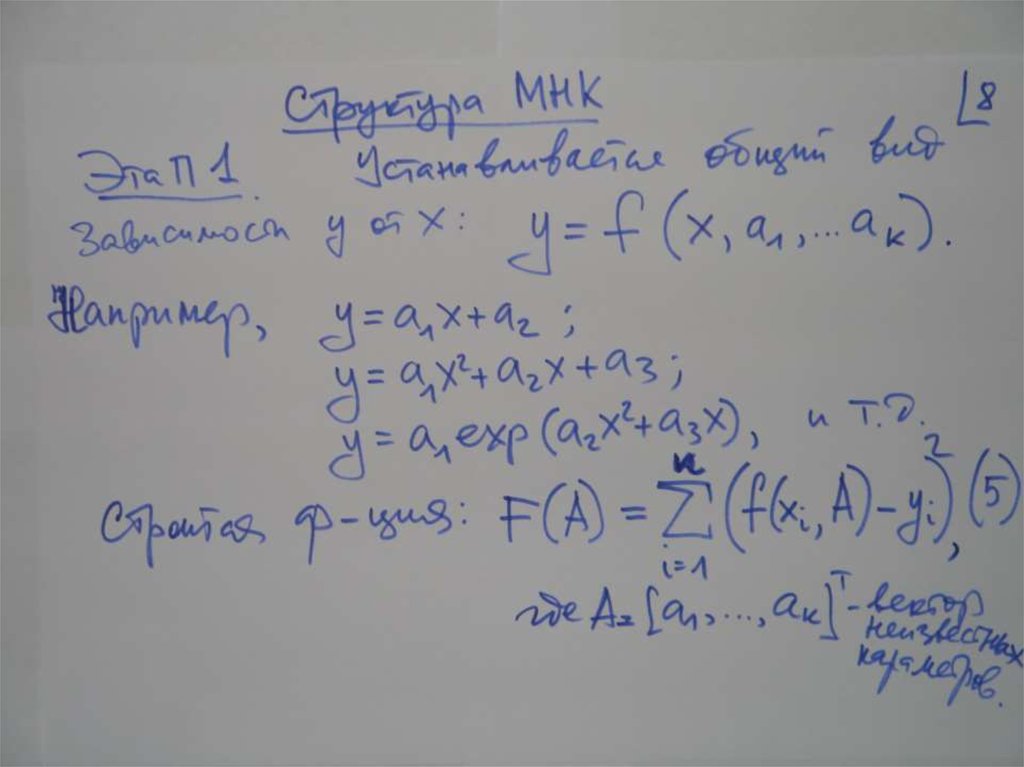 Структура МНК
8
Этап 1. Устанавливается общий вид
зависимости y от x: y = f (x, a₁, ... aₖ).
Например, y = a₁x + a₂ ;
y = a₁x² + a₂x + a₃ ;
y = a₁ exp (a₂x² + a₃x), и т.д.
Строится ф-ция: F(A) = ∑ⁿᵢ₌₁ (f(xᵢ, A) - yᵢ)², (5)
где A = [a₁, ..., aₖ]ᵀ - вектор
неизвестных
параметров.